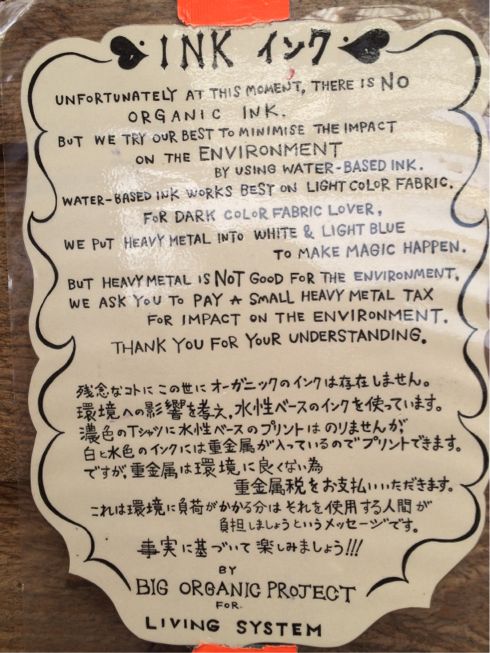 INK インク
UNFORTUNATELY AT THIS MOMENT, THERE IS NO
ORGANIC INK.
BUT WE TRY OUR BEST TO MINIMISE THE IMPACT
ON THE ENVIRONMENT
BY USING WATER-BASED INK.
WATER-BASED INK WORKS BEST ON LIGHT COLOR FABRIC.
FOR DARK COLOR FABRIC LOVER,
WE PUT HEAVY METAL INTO WHITE & LIGHT BLUE
TO MAKE MAGIC HAPPEN.
BUT HEAVY METAL IS NOT GOOD FOR THE ENVIRONMENT,
WE ASK YOU TO PAY A SMALL HEAVY METAL TAX
FOR IMPACT ON THE ENVIRONMENT.
THANK YOU FOR YOUR UNDERSTANDING.
残念なコトにこの世にオーガニックのインクは存在しません。
環境への影響を考え、水性ベースのインクを使っています。
濃色のTシャツに水性ベースのプリントはのりませんが、
白と水色のインクには重金属が入っているのでプリントできます。
ですが、重金属は環境に良くない為
重金属税をお支払いいただきます。
これは環境に負荷がかかる分はそれを使用する人間が
負担しましょうというメッセージです。
事実に基づいて楽しみましょう!!!
BY
BIG ORGANIC PROJECT
FOR
LIVING SYSTEM